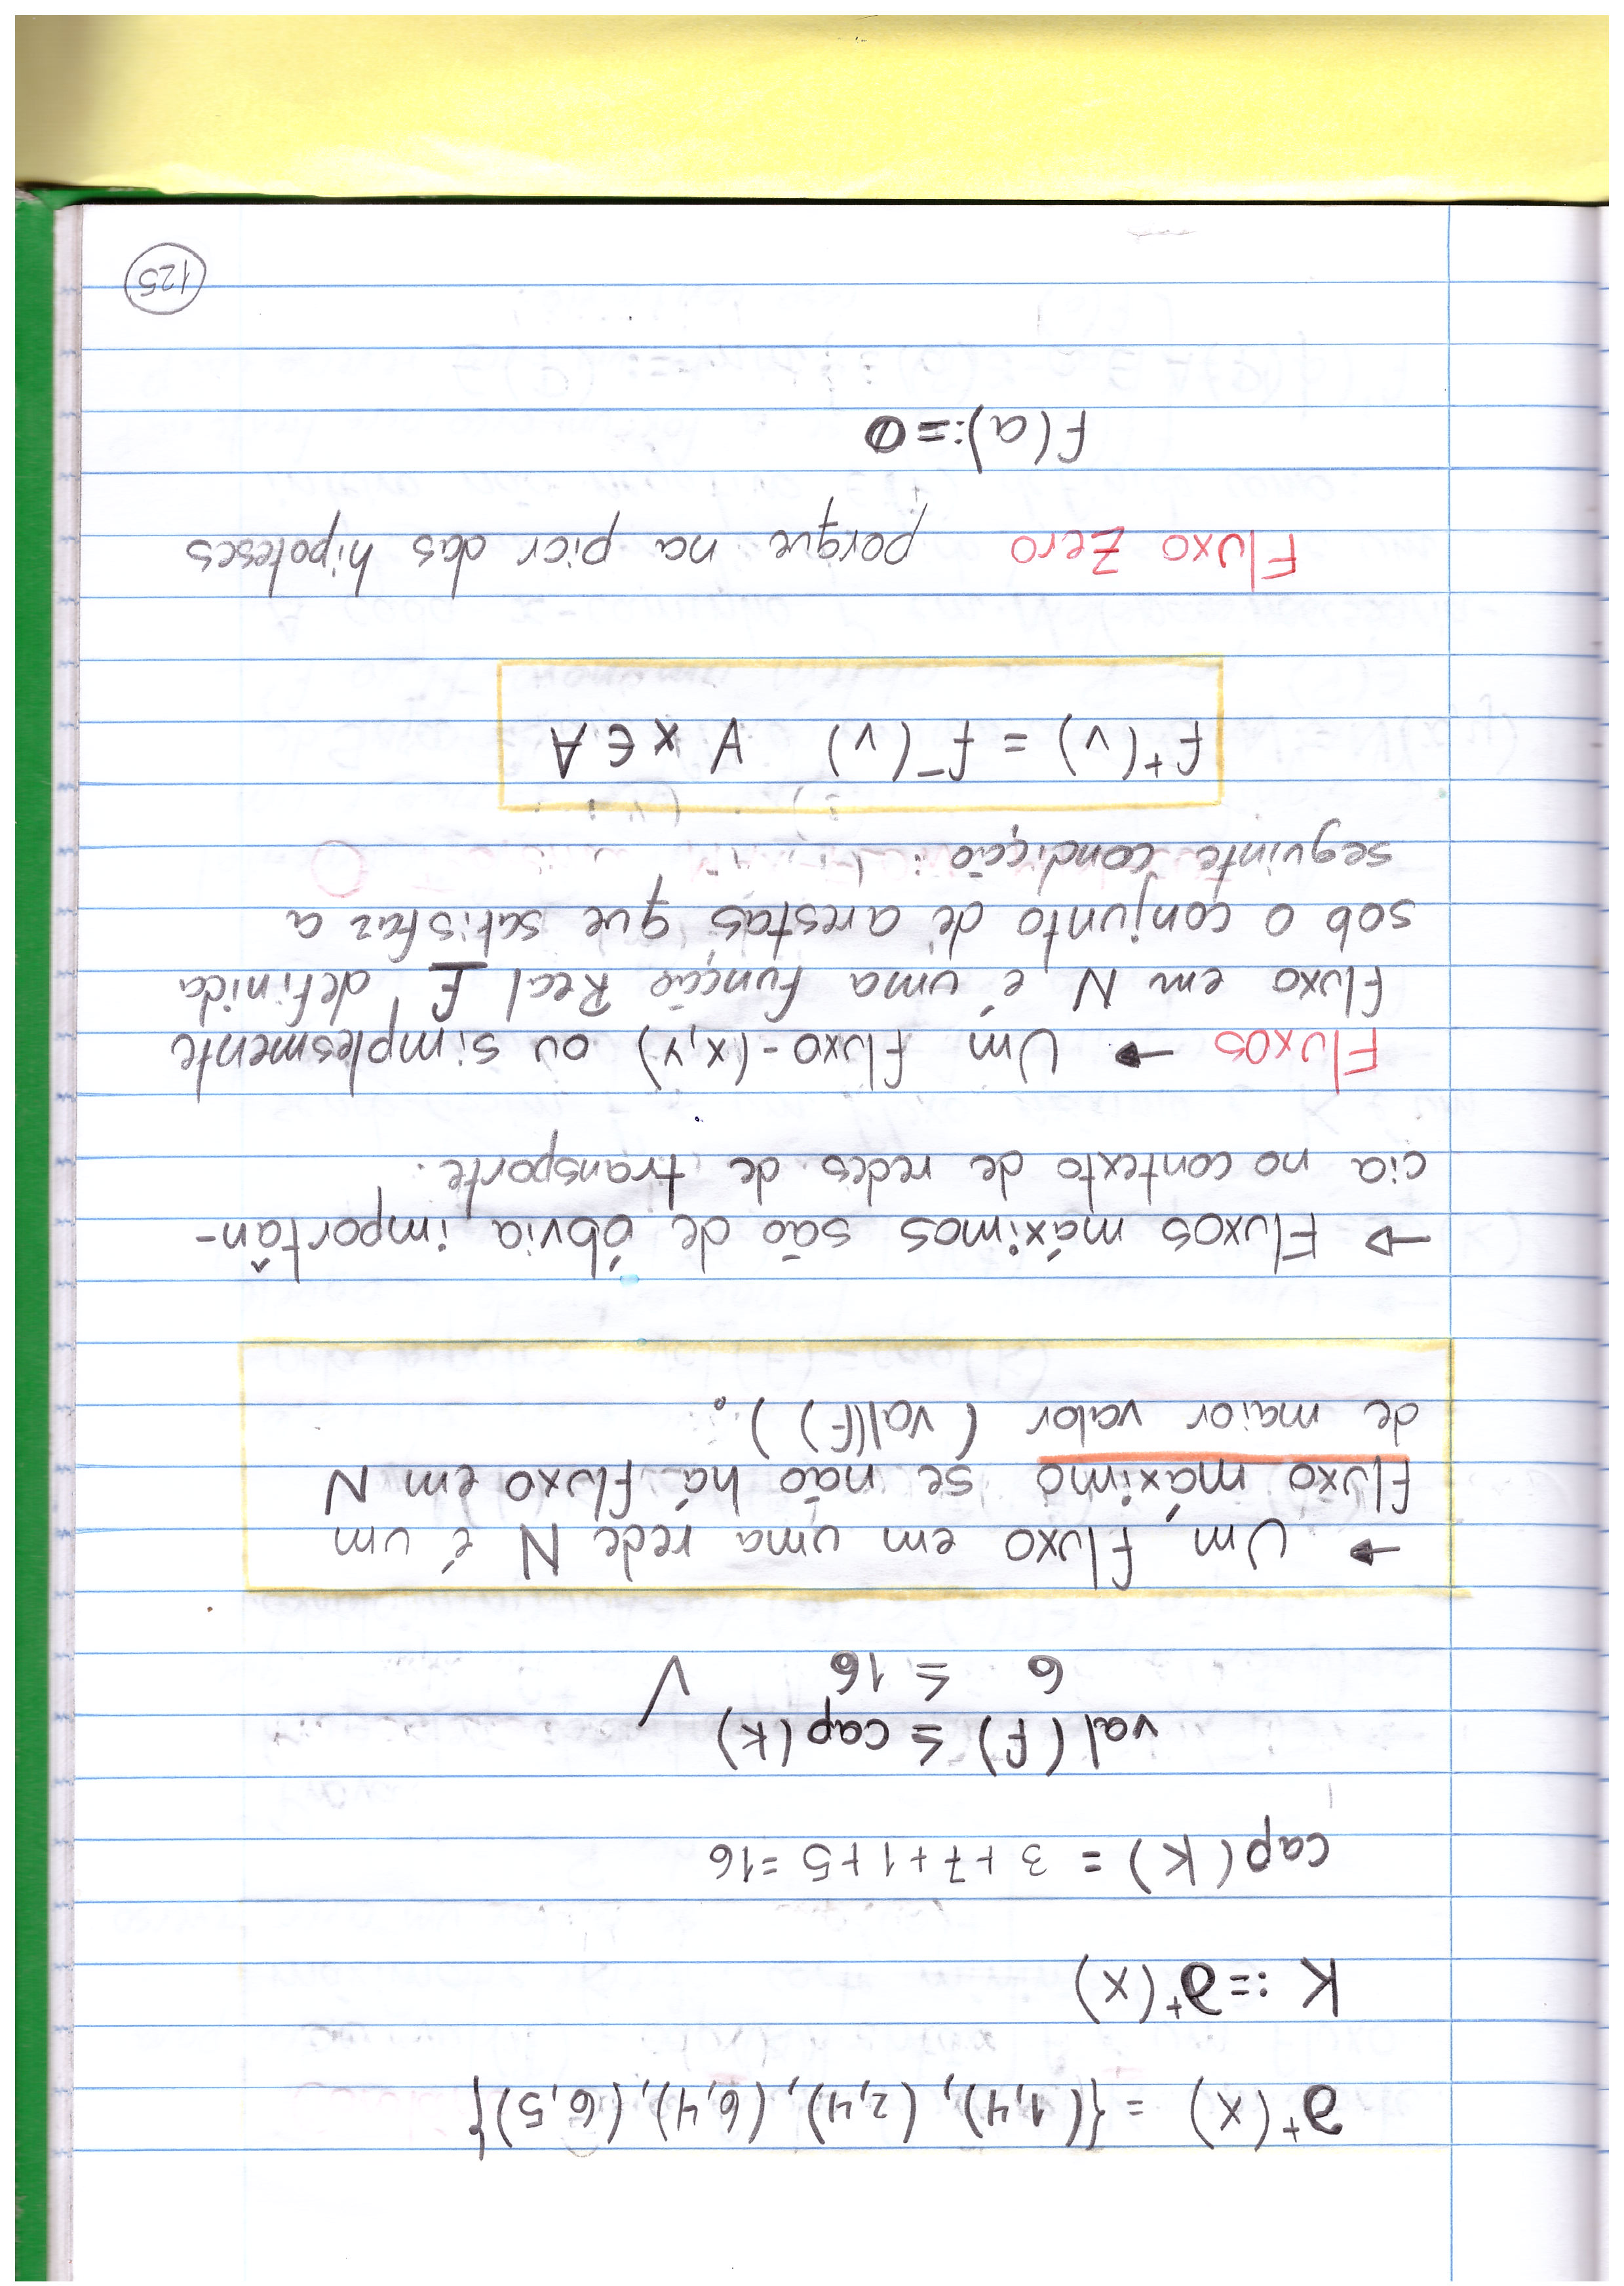 ∂⁺(x) = {(1,4), (2,4), (6,4), (6,5)}
K := ∂⁺(x)
cap(K) = 3+7+1+5=16
val(f) ≤ cap(k)
6 ≤ 16 ✓
→ Um fluxo em uma rede N é um
fluxo máximo se não há fluxo em N
de maior valor (val(f)).
→ Fluxos máximos são de óbvia importân-
cia no contexto de redes de transporte.
Fluxos → Um fluxo-(x,y) ou simplesmente
fluxo em N é uma função Real f definida
sob o conjunto de arestas que satisfaz a
seguinte condição:
f⁺(v) = f⁻(v) ∀ x ∈ A
Fluxo Zero porque na pior das hipoteses
f(a):=0
125